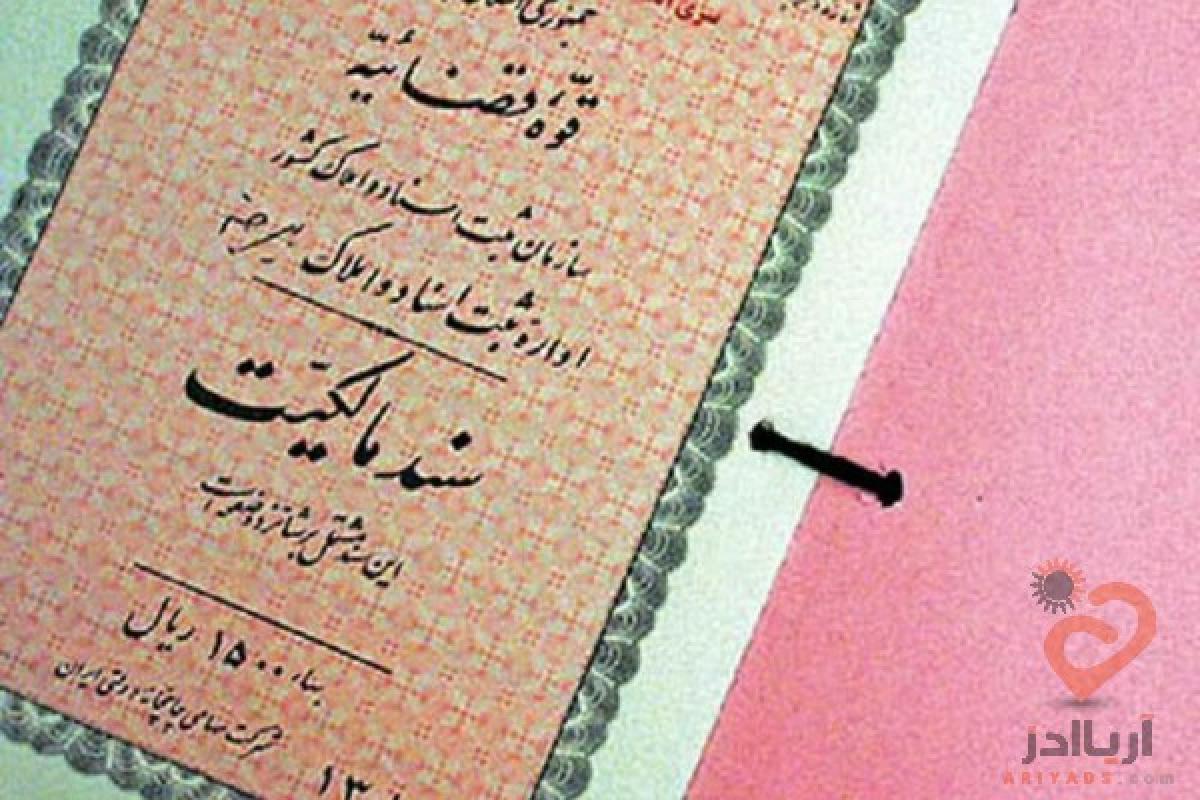 جمهوری
قوّهٔ قضائیّه
سازمان ثبت اسناد و املاک کشور
اداره ثبت اسناد و املاک
سند مالکیّت
این سند مشتمل بر شانزده صفحه است
بهاء ۱۵۰۰ ریال
شرکت سهامی چاپخانه دولتی ایران
آریاادز
ARIYADS.com